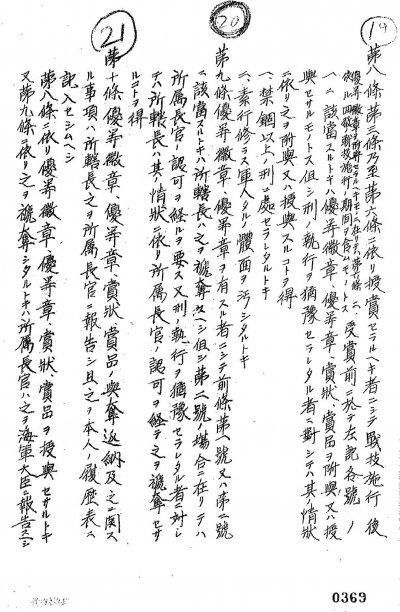 19
第八條第三條乃至第六條ニ依リ授賞セラルヘキ者ニシテ戰技施行後
受賞前ニ於テ左記各號ノ
一ニ該當スルトキハ優等徽章、優等章、賞狀、賞品ヲ附與又ハ授
與セサルモノトス但シ刑ノ執行ヲ猶豫セラレタル者ニ對シテハ其ノ情狀
ニ依リ之ヲ附與又ハ授與スルコトヲ得
一、禁錮以上ノ刑ニ處セラレタルトキ
二、素行修ラス軍人タル體面ヲ汚シタルトキ
20
第九條優等徽章、優等章ヲ有スル者ニシテ前條第一號又ハ第二號
ニ該當スルトキハ所轄長ハ之ヲ褫奪スヘシ但シ第二號ノ場合ニ在リテハ
所屬長官ノ認可ヲ經ルヲ要ス又刑ノ執行ヲ猶豫セラレタル者ニ對シ
テハ所轄長ハ其ノ情狀ニ依リ所屬長官ノ認可ヲ経テ之ヲ褫奪セサ
ルコトヲ得
21
第十條優等徽章、優等章、賞狀、賞品ノ與奪返納及之ニ関ス
ル事項ハ所轄長之ヲ所屬長官ニ報告シ且之ヲ本人ノ履歴表ニ
記入セシムヘシ
第八條ニ依リ優等徽章、優等章、賞狀賞品ヲ授與セサルトキ
又第九條ニ依リ之ヲ褫奪シタルトキハ所屬長官ハ之ヲ海軍大臣ニ報告スヘシ
0369